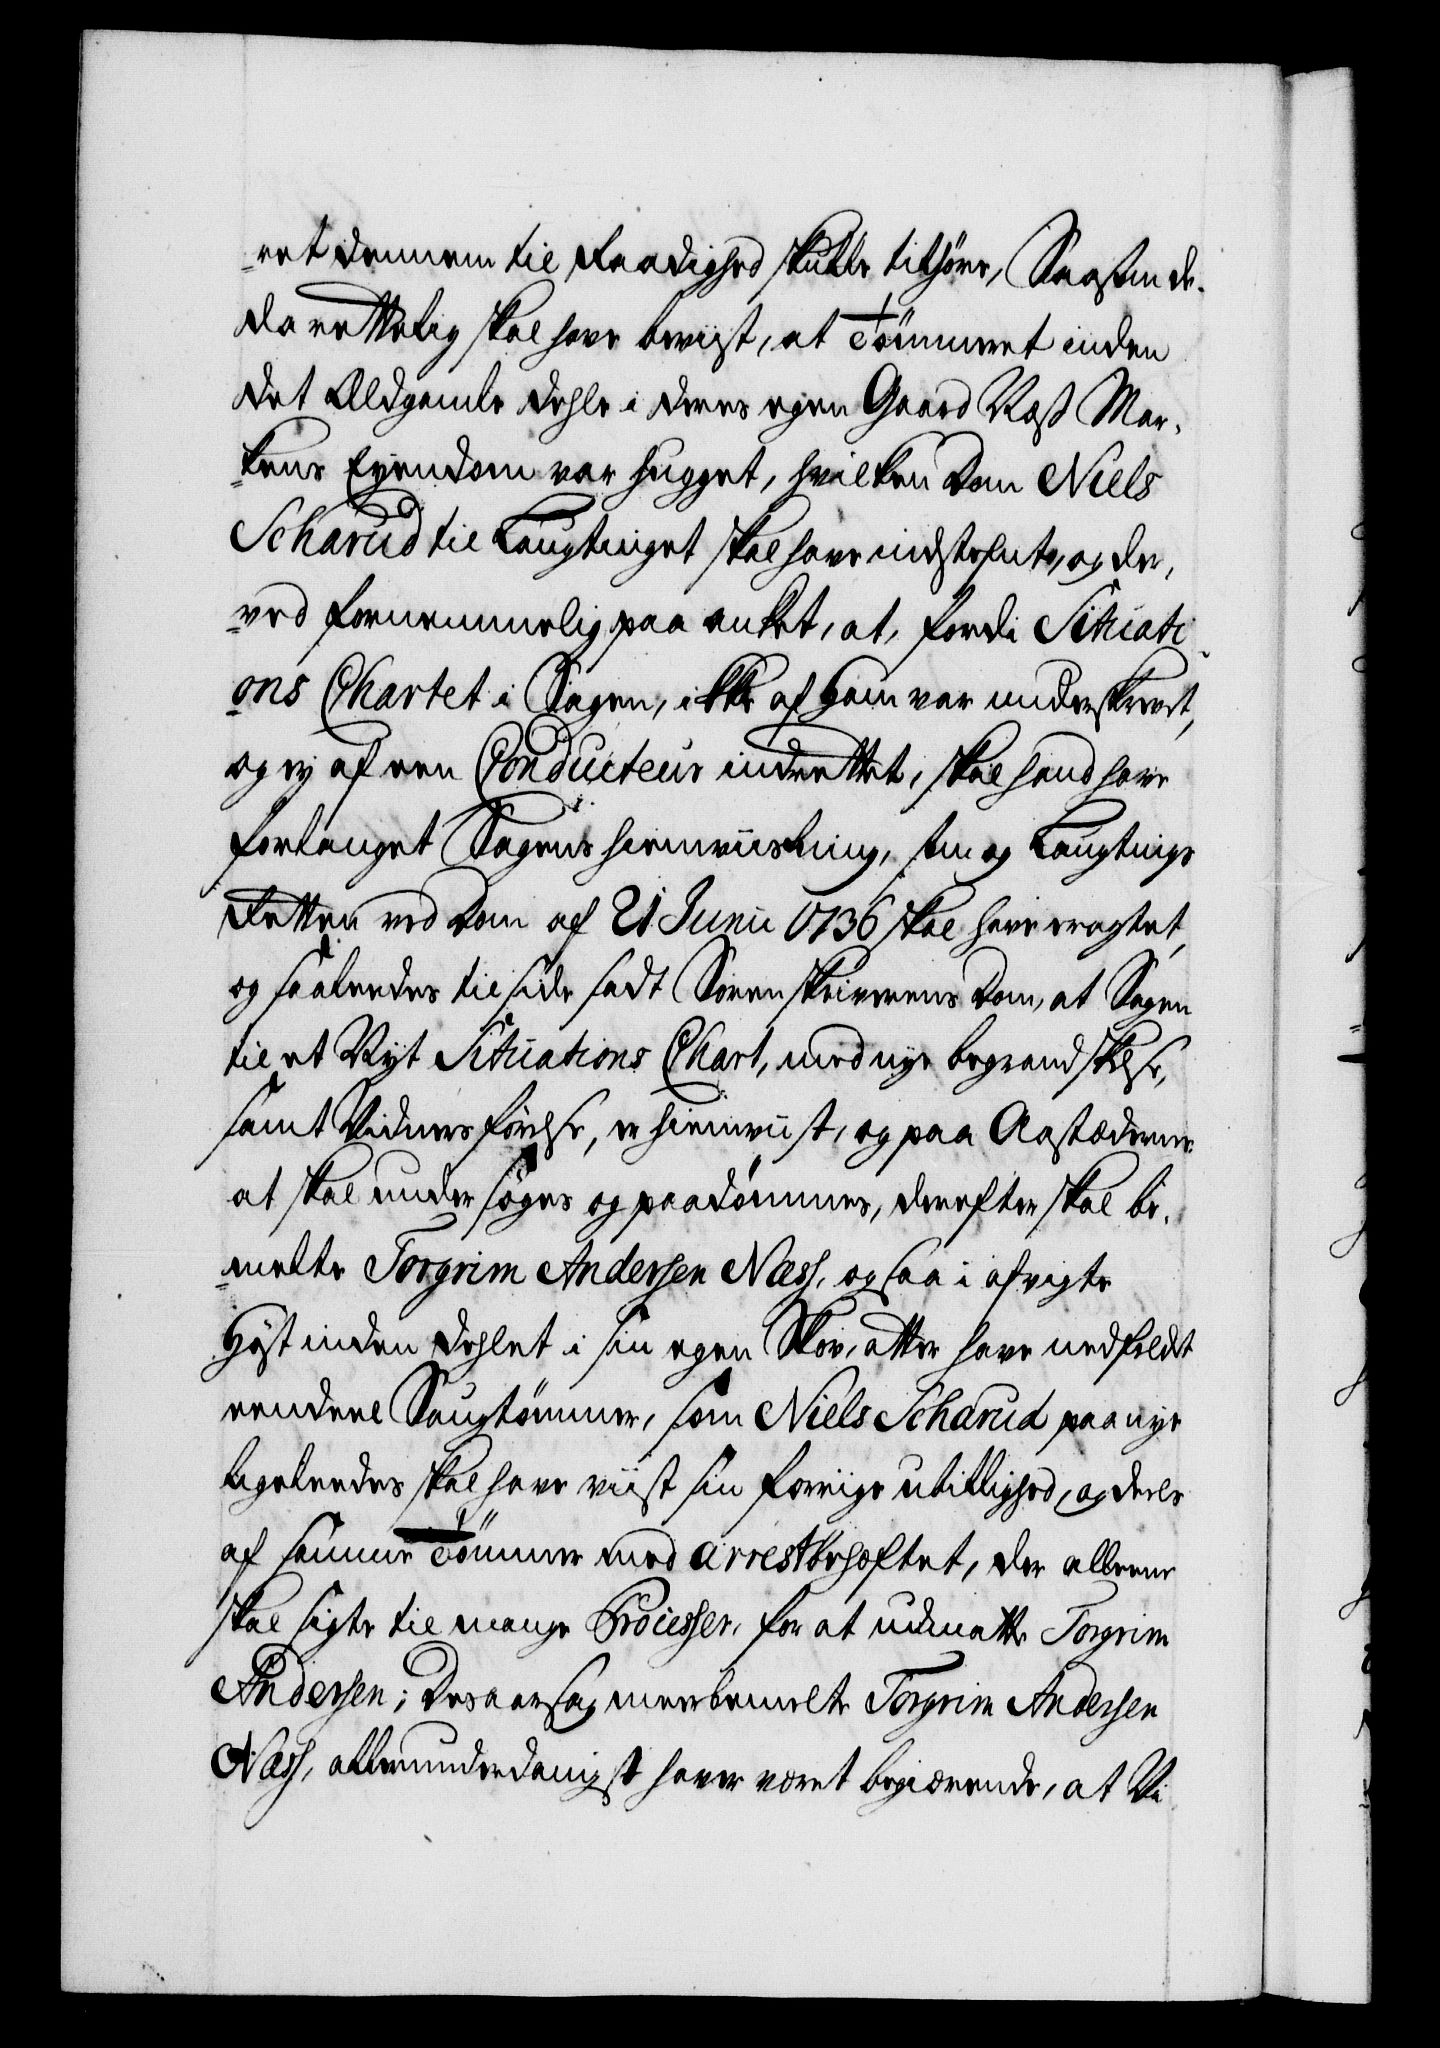 -ret dennem til Raadighed skulle tilhöre, Saasom de
da rettelig skal have beviist, at Tömmeret inden
det Ældgamle dehle i deres egen Gaard Næss Mar-
-kens Eyendom var hugget, hvilken Dom Niels
Scharud til Laugtinget skal have indstefnt, og der-
-ved fornemmelig paa anket, at, fordi Situati-
-ons Chartet i Sagen, ikke af Ham var underskrevet,
og ej af een Conducteur indrettet, skal hand have
forlanget Sagens hiemviisning, som og Laugtings
Retten ved Dom af 21 Junii 1736 skal have eragtet,
og saaledes til side sadt Sorenskriverens Dom, at Sagen
til et Nyt Situations Chart, med nye begrandskelse,
samt Vidners förelse, er hiemviist, og paa Aastæderne
at skal undersöges og paadömmes, derefter skal be-
-melte Torgrim Andersen Næss, ogsaa i afvigte
Höst inden dehlet i sin egen Skov, atter have nedfeldt
een deel Saugtömmer, som Niels Scharud paa nye
ligeleedes skal have viist sin forrige ubillighed, og deels
af samme Tömmer med Arrest behæftet, der alleene
skal sigte til mange Processer, for at udmatte Torgrim
Andersen; Desaarsag meerbemelte Torgrim Andersen
Næss, allerunderdanigst haver været begiærende, at Vi